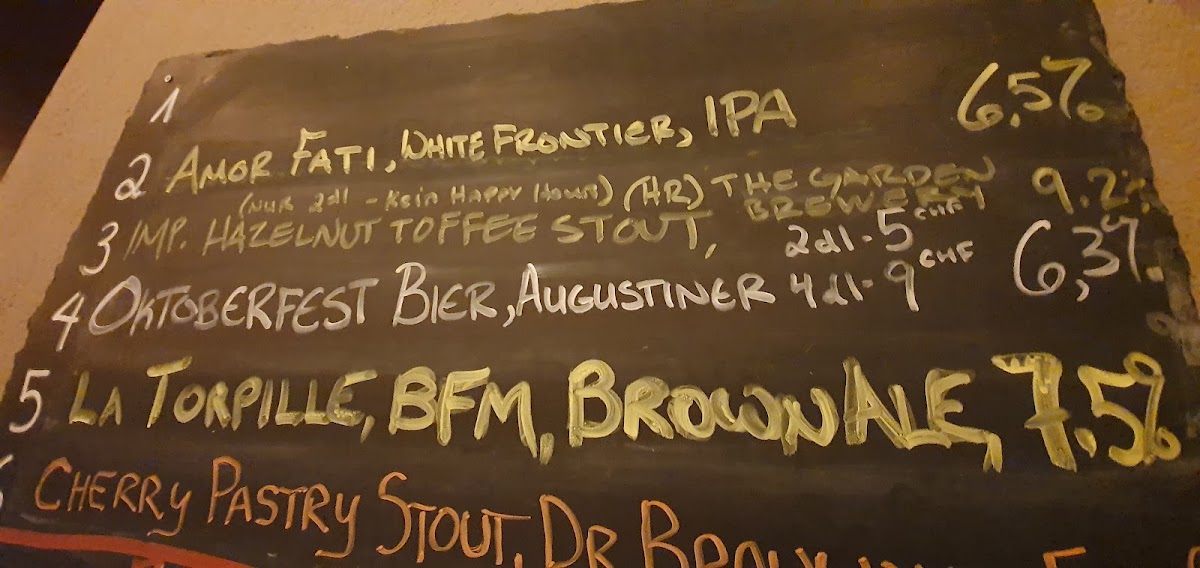 1
2 AMOR FATI, WHITE FRONTIER, IPA 6,5%
(NUR 2dl - Kein HAPPY HOUR) (HR) THE GARDEN BREWERY 9.2%
3 IMP. HAZELNUT TOFFEE STOUT,
2dl - 5 CHF
4 OKTOBERFEST BIER, AUGUSTINER 4dl - 9 CHF 6,3%
5 LA TORPILLE, BFM, BROWN ALE, 7.5%
CHERRY PASTRY STOUT, DR